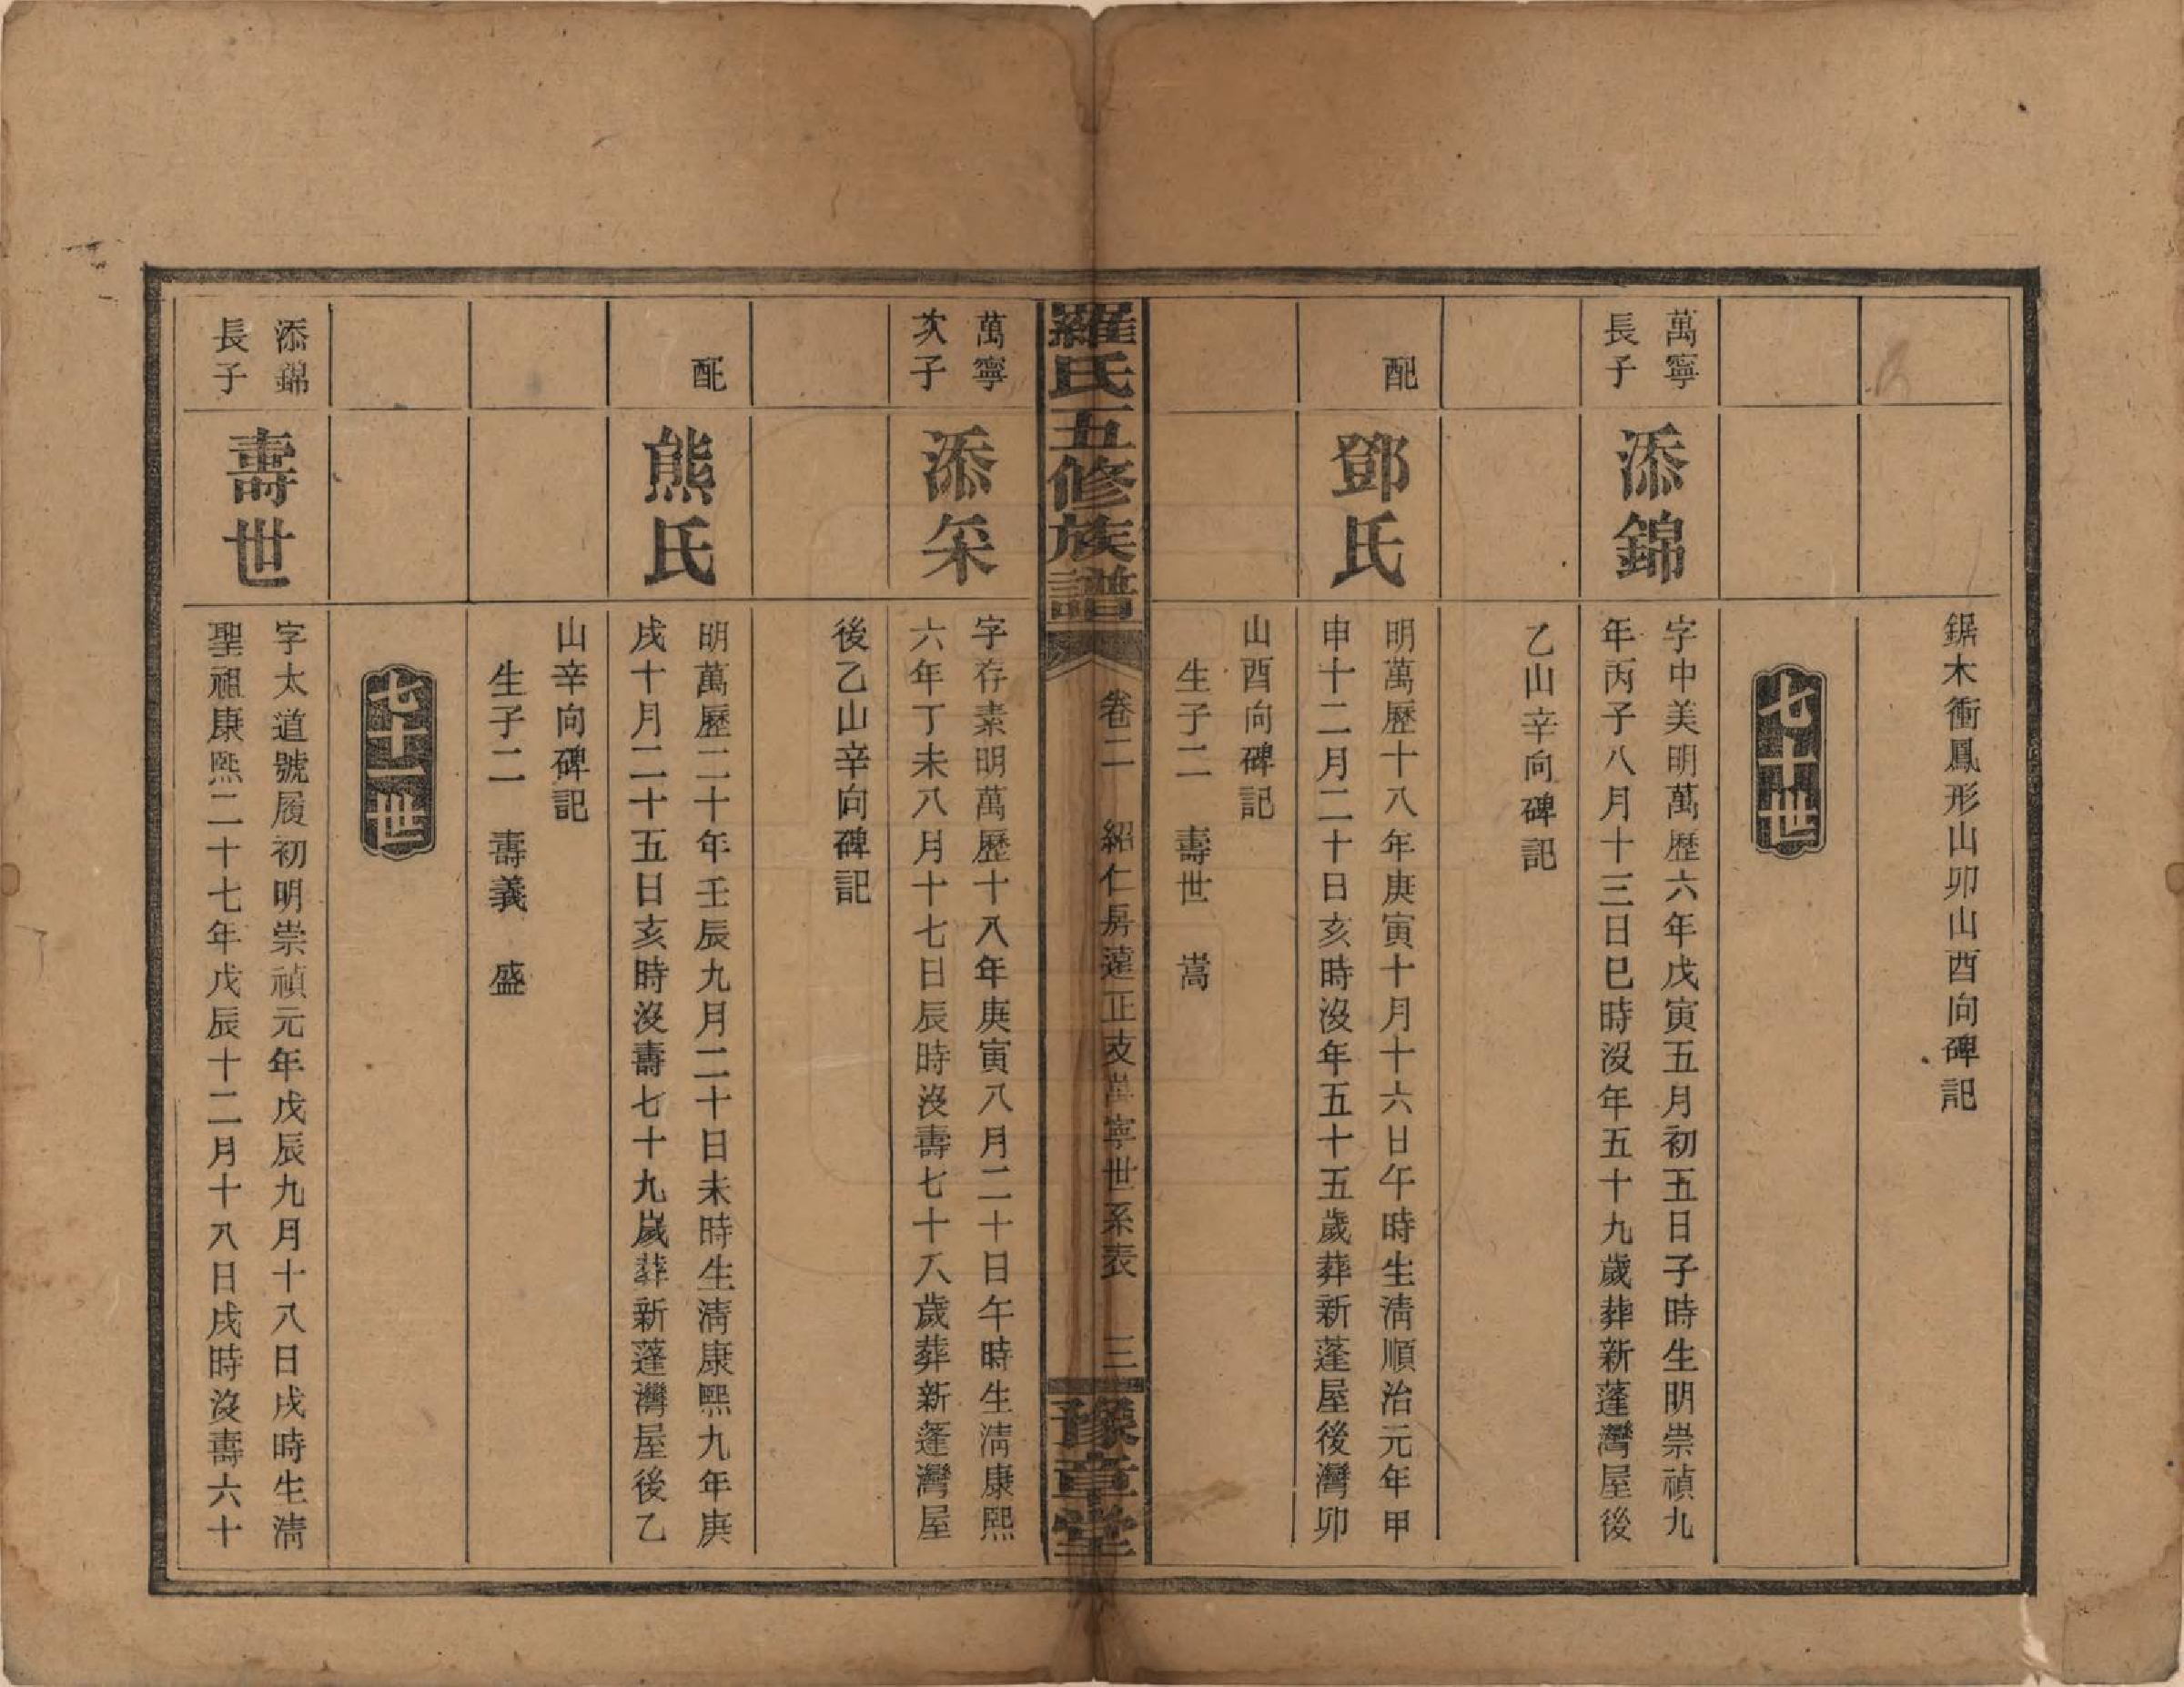 鋸木衝鳳形山卯山酉向碑記
七十世
萬寧
長子
添錦
字中美明萬歷六年戊寅五月初五日子時生明崇禎九
年丙子八月十三日巳時沒年五十九歲葬新蓬灣屋後
乙山辛向碑記
配
鄧氏
明萬歷十八年庚寅十月十六日午時生淸順治元年甲
申十二月二十日亥時沒年五十五歲葬新蓬屋後灣卯
山酉向碑記
生子二 壽世 嵩
羅氏五修族譜
卷二 紹仁房達正支萬寧世系表 三
豫章堂
萬寧
次子
添罙
字存素明萬歷十八年庚寅八月二十日午時生淸康熙
六年丁未八月十七日辰時沒壽七十八歲葬新蓬灣屋
後乙山辛向碑記
配
熊氏
明萬歷二十年壬辰九月二十日未時生淸康熙九年庚
戌十月二十五日亥時沒壽七十九歲葬新蓬灣屋後乙
山辛向碑記
生子二 壽義 盛
七十一世
添錦
長子
壽世
字太道號履初明崇禎元年戊辰九月十八日戌時生淸
聖祖康熙二十七年戊辰十二月十八日戌時沒壽六十